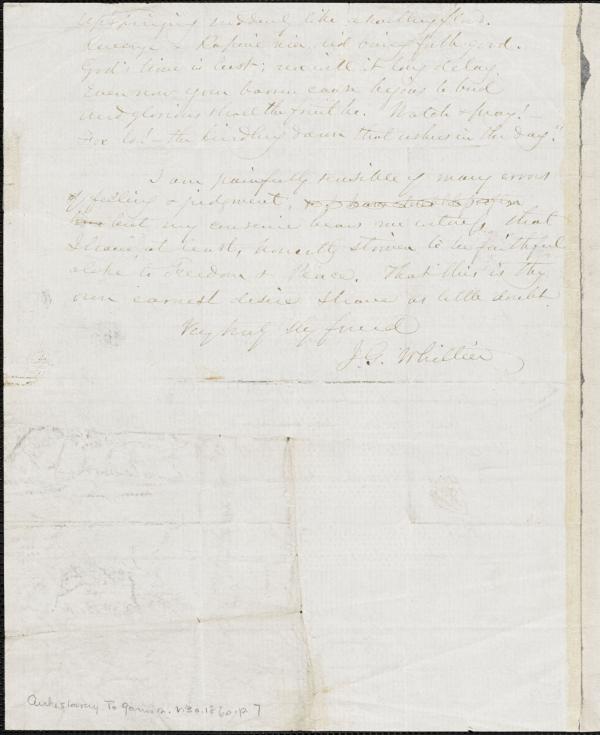 Upspringing suddenly like a
Revenge & Rapine ministering
God's time is best; nor will it long delay.
Even now your barren cause begins to bud
And glorious shall the fruit be. Watch & pray! —
For lo! — the kindling dawn that ushers in the day."
I am painfully sensible of many errors
of feeling & judgment,
but my conscience bears me witness, that
I have, at least, honestly striven to be faithful
alike to Freedom & Peace. That this is thy
own earnest desire I have as little doubt.
Very truly thy friend
J. G. Whittier
Antislavery To Garrison. v.30. 1860. p. 7